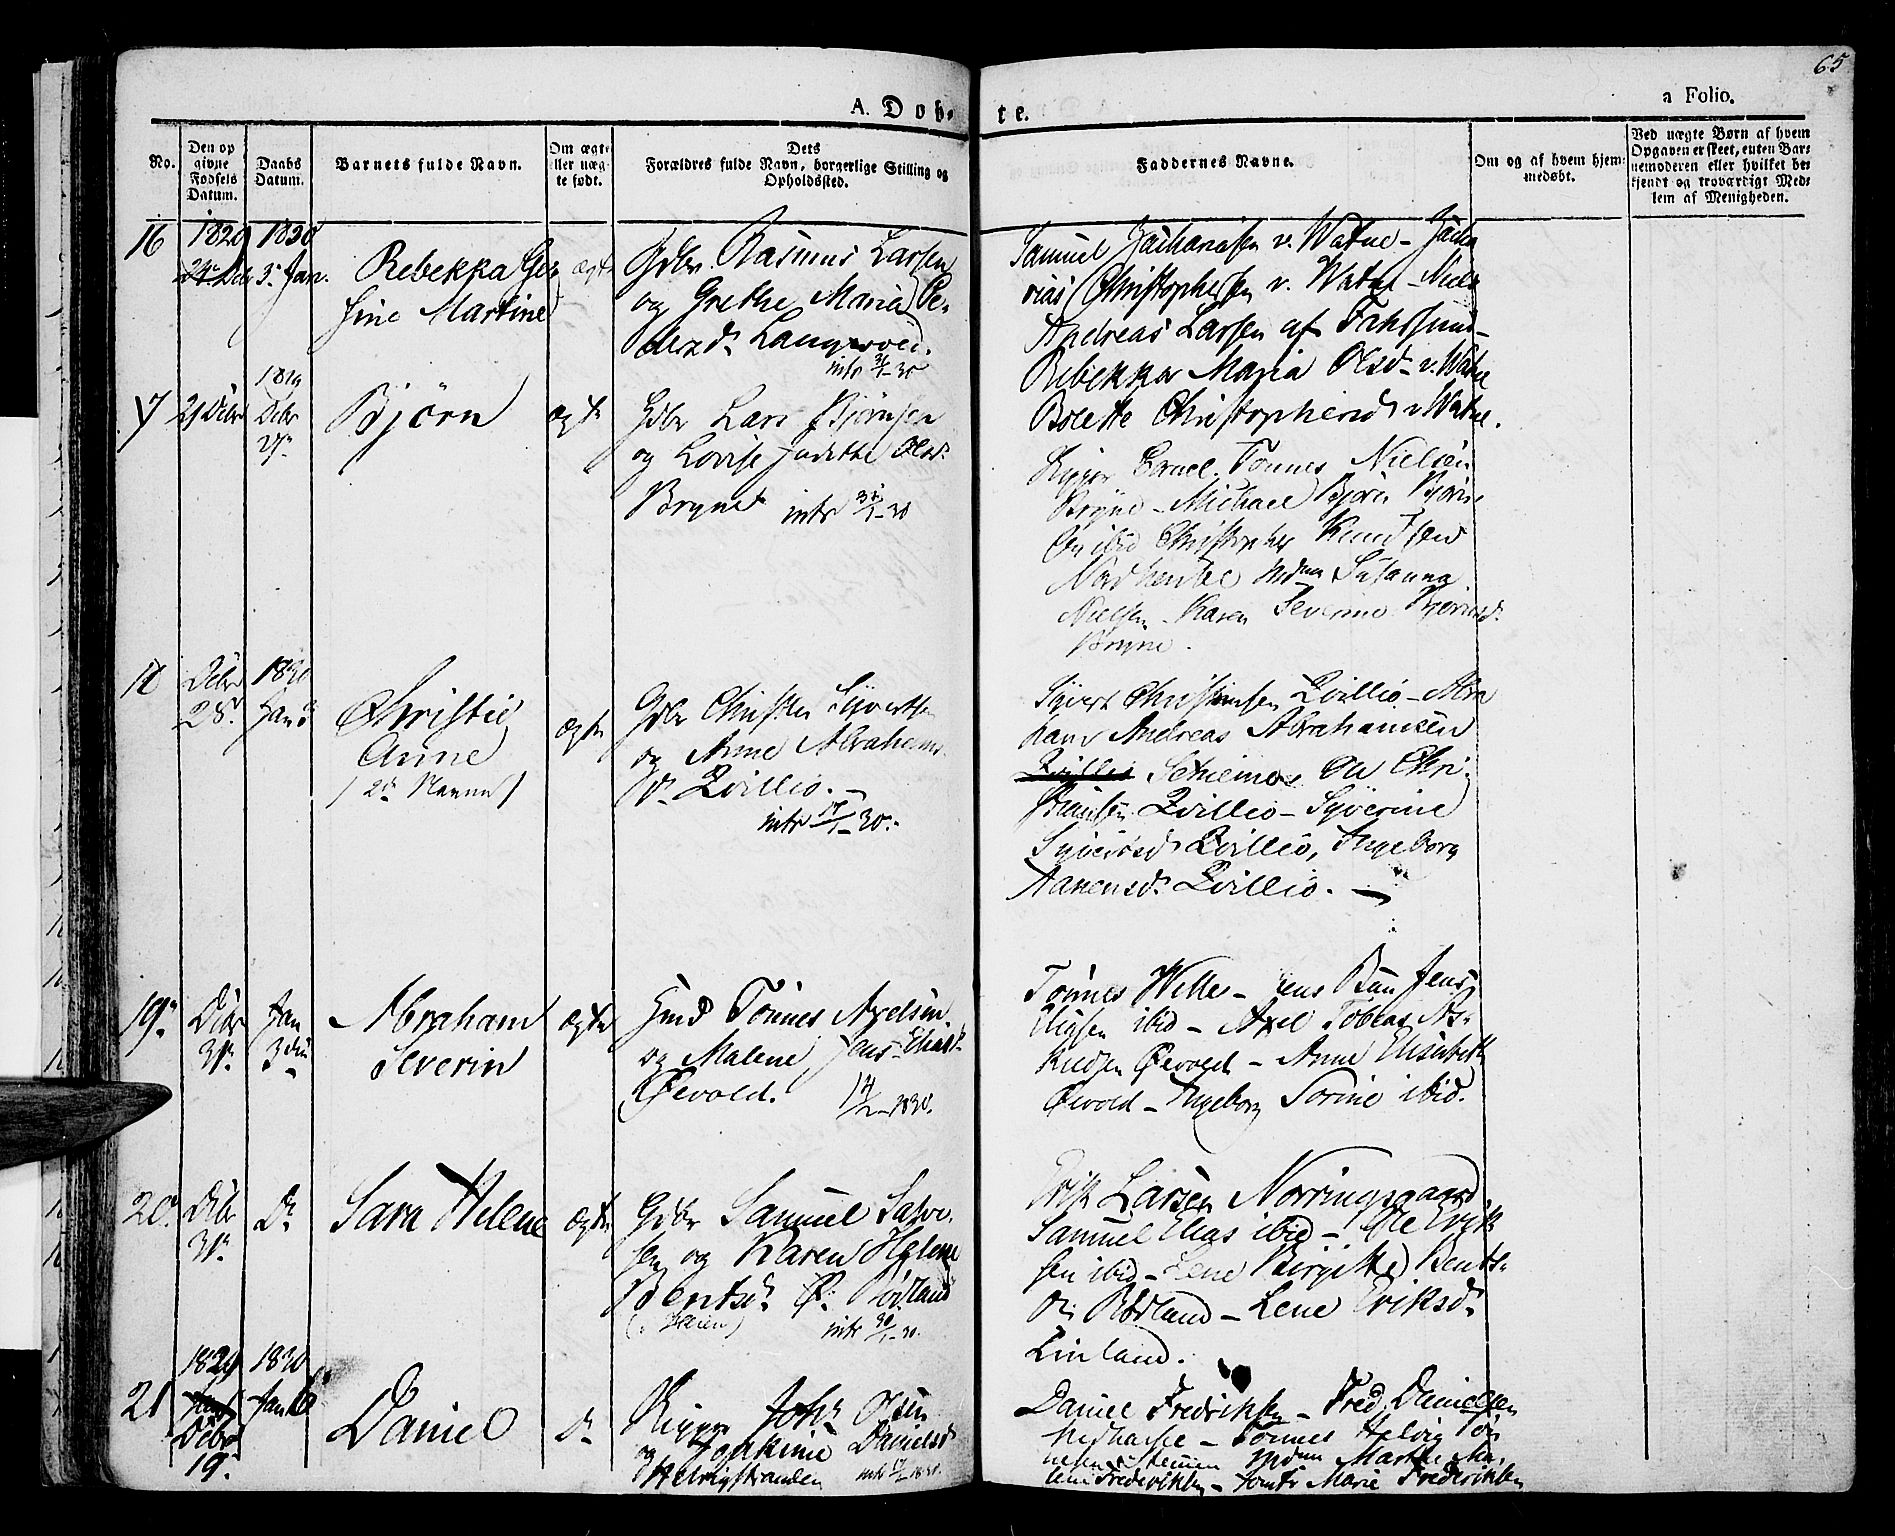 65
A. Døb-
te.
a Folio.
No.
Den op
givne
Fødsels
Datum.
Daabs
Datum.
Barnets fulde Navn.
Om ægte
eller uæg-
te født.
Dets
Forældres fulde Navn, borgerlige Stilling og
Opholdssted.
Faddernes Navne.
Om og af hvem hjem-
medøbt.
Ved uægte Børn af hvem
Opgaven er skeet, enten Bar-
nemoderen eller hvilket be-
kjendt og troværdigt Med-
lem af Menigheden.
16
1829
24 Debr
1830
3 Jan.
Rebekka Ge-
sine Martine
ægte
Gdbr. Rasmus Larsen
og Grethe Maria Pe-
dersd. Langvold.
intr 31/1-30
Samuel Zachariasen v. Watne - Zacha
rias Christophersen v. Watne - Niels
Andreas Larsen af Farsund -
Rebekka Maria Olsd. v. Watne
Bolette Christophersd v Watne.
17
21 Debr
1829
Debr
27
Bjørn
ægte
Gdbr Lars Bjørnsen
og Lovise Judithe Olsd.
Bryne intr 31/1-30
Tønnes Nielsen
Bryne - Michael Bjørn Bjørn-
sen ibid Christopher Knudsen
Susanna
Nielsen - Karen Severine Bjørnsd.
Bryne.
18
Debr
28.
1830
Jan 3
Christie
Anne
(2de Navne)
ægte
Gdbr Christen Syvertsen
og Anne Abrahams
d. Qvillio. -
intr 17/1-30.
Syvert Christensen Qvillio - Abra
ham Andreas Abrahamsen
Qvillio Ole Chri-
stensen Qvillio - Syverine
Syvertsd Qvillio, Ingeborg
Aanensd. Qvillio. -
19
Debr
31
Jan
3die
Abraham
Severin
ægte
Tønnes Axelsen
og Malene Jens-Eliasd.
Øevold.
14/2-1830.
Tønnes Welle - Jens Jens
Eliasen ibid - Axel Tobias As-
Øevold - Anne Elisabeth
Øevold - Ingeborg Sorine ibid.
20
Debr
31
Do
Sara Helene
ægte
Gdbr Samuel Salve-
sen og Karen Helene
Bentsd. Ø: Rødland
intr 30/1-30.
Erik Larsen Norringsgaard
Samuel Elias ibid - Ole Erik
sen ibid - Lene Birgitte Bents-
d. Rødland - Lene Eriksd.
Linland.
21
1829
Jan
Debr
19
1830
Jan 6
Daniel
do
Joh. Olsen
og Joakime Danielsd
Helvigstranden intr 17/1 1830.
Daniel Fredriksen - Fred. Danielsen
- Tønnes Helvig Tøn
nesen Madam Marthe Ma-
lene Frederiksen - Jomfr Marie Frederiksen